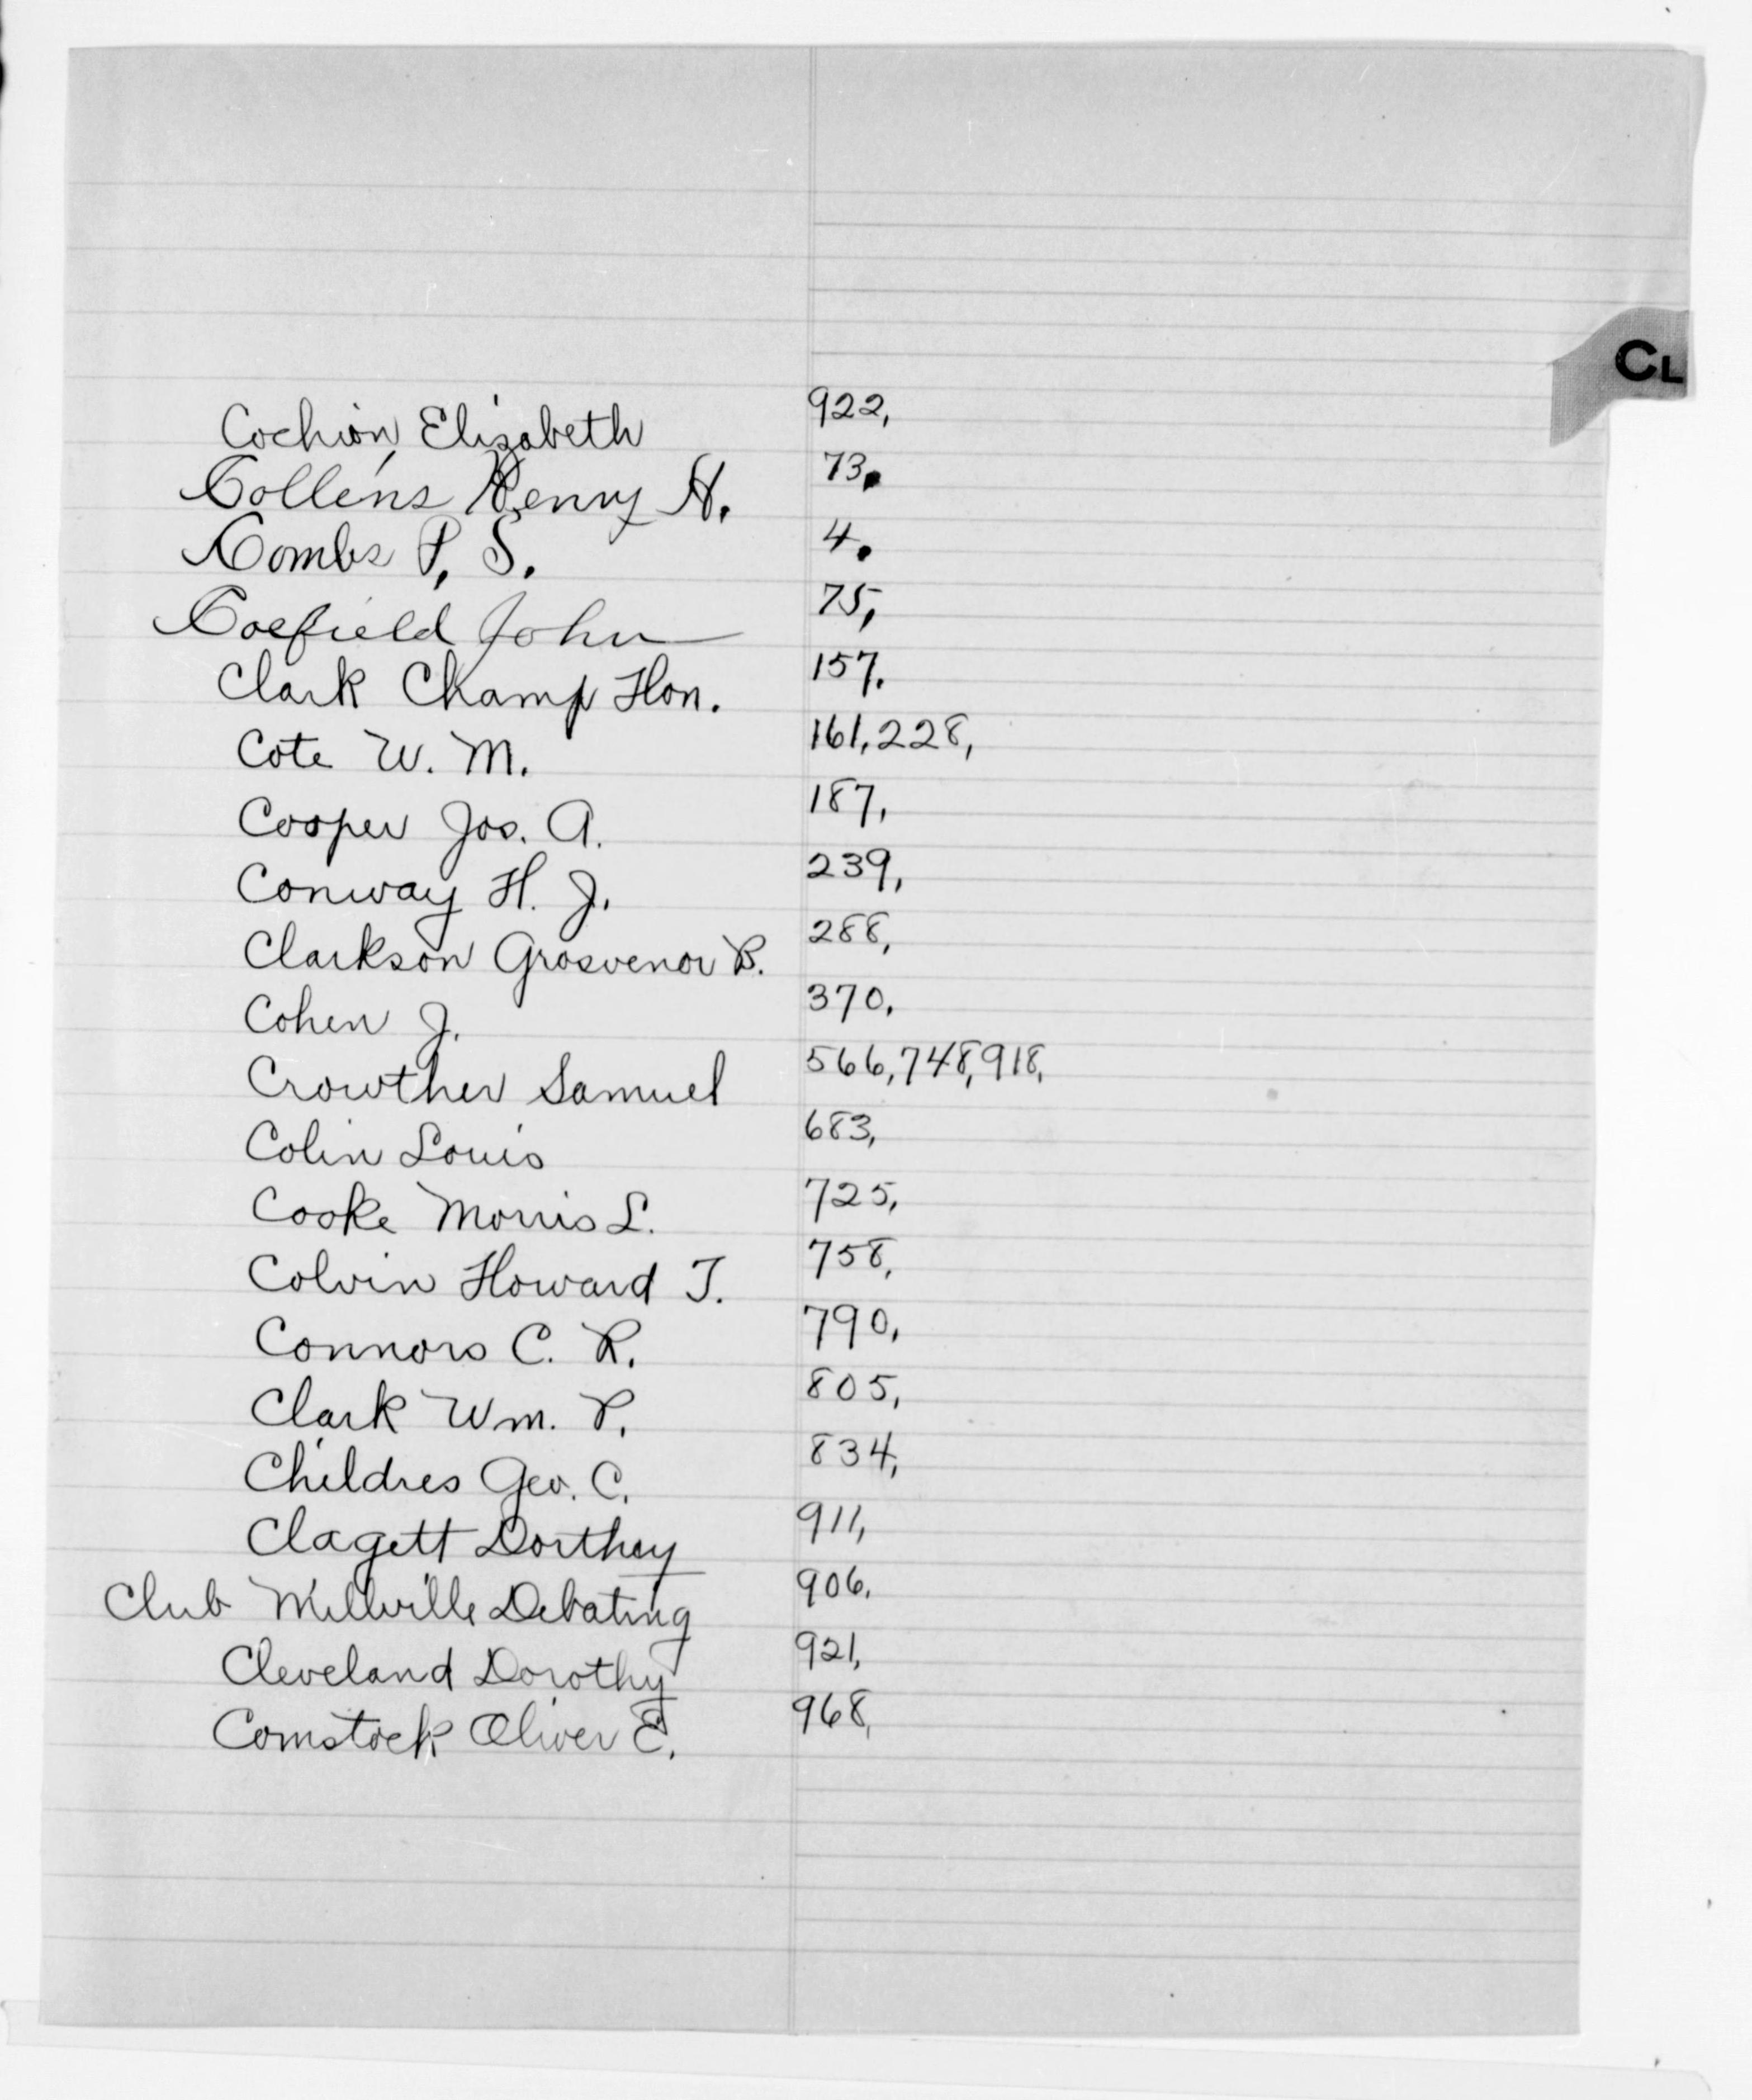 CL
Cochion, Elizabeth 922,
Collins Henry H. 73.
Combs P. S. 4.
Coefield John 75,
Clark Champ Hon. 157.
Cote W. M. 161, 228,
Cooper Jos. A. 187,
Conway H. J. 239,
Clarkson Grosvenor B. 288,
Cohen J. 370.
Crowther Samuel 566, 748, 918,
Colin Louis 683,
Cooke Morris L. 725,
Colvin Howard T. 758,
Connors C. R. 790,
Clark Wm. P. 805,
Childres Geo. C. 834,
Clagett Dorthey 911,
Club Millville Debating 906.
Cleveland Dorothy 921,
Comstock Oliver E. 968,